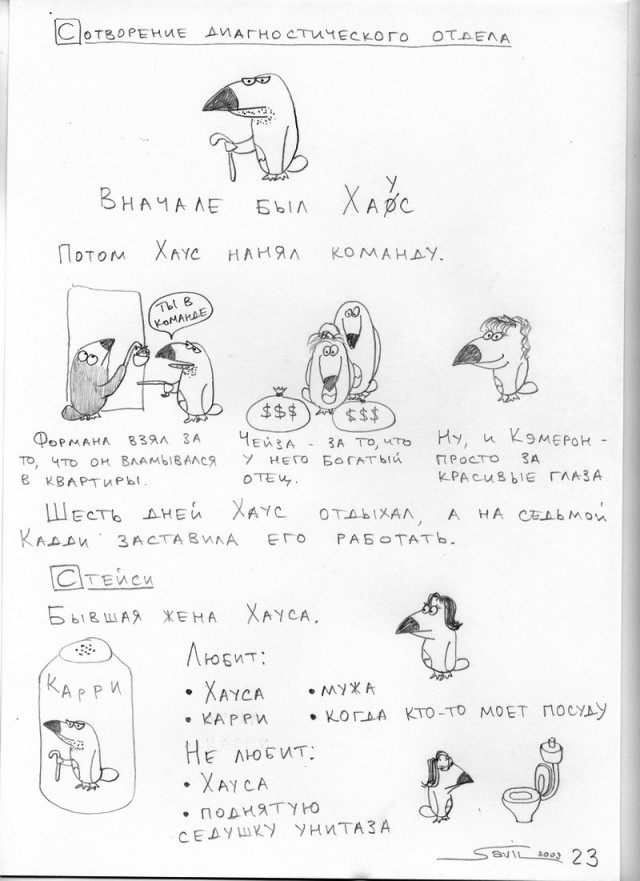 Сотворение диагностического отдела
Вначале был Хаус
Потом Хаус нанял команду.
Ты в
команде
$$$
$$$
Формана взял за
то, что он вламывался
в квартиры.
Чейза - за то, что
у него богатый
отец.
Ну, и Кэмерон -
просто за
красивые глаза
Шесть дней Хаус отдыхал, а на седьмой
Кадди заставила его работать.
Стейси
Бывшая жена Хауса.
Карри
Любит:
• Хауса • мужа
• карри • когда кто-то моет посуду
Не любит:
• Хауса
• поднятую
седушку унитаза
23